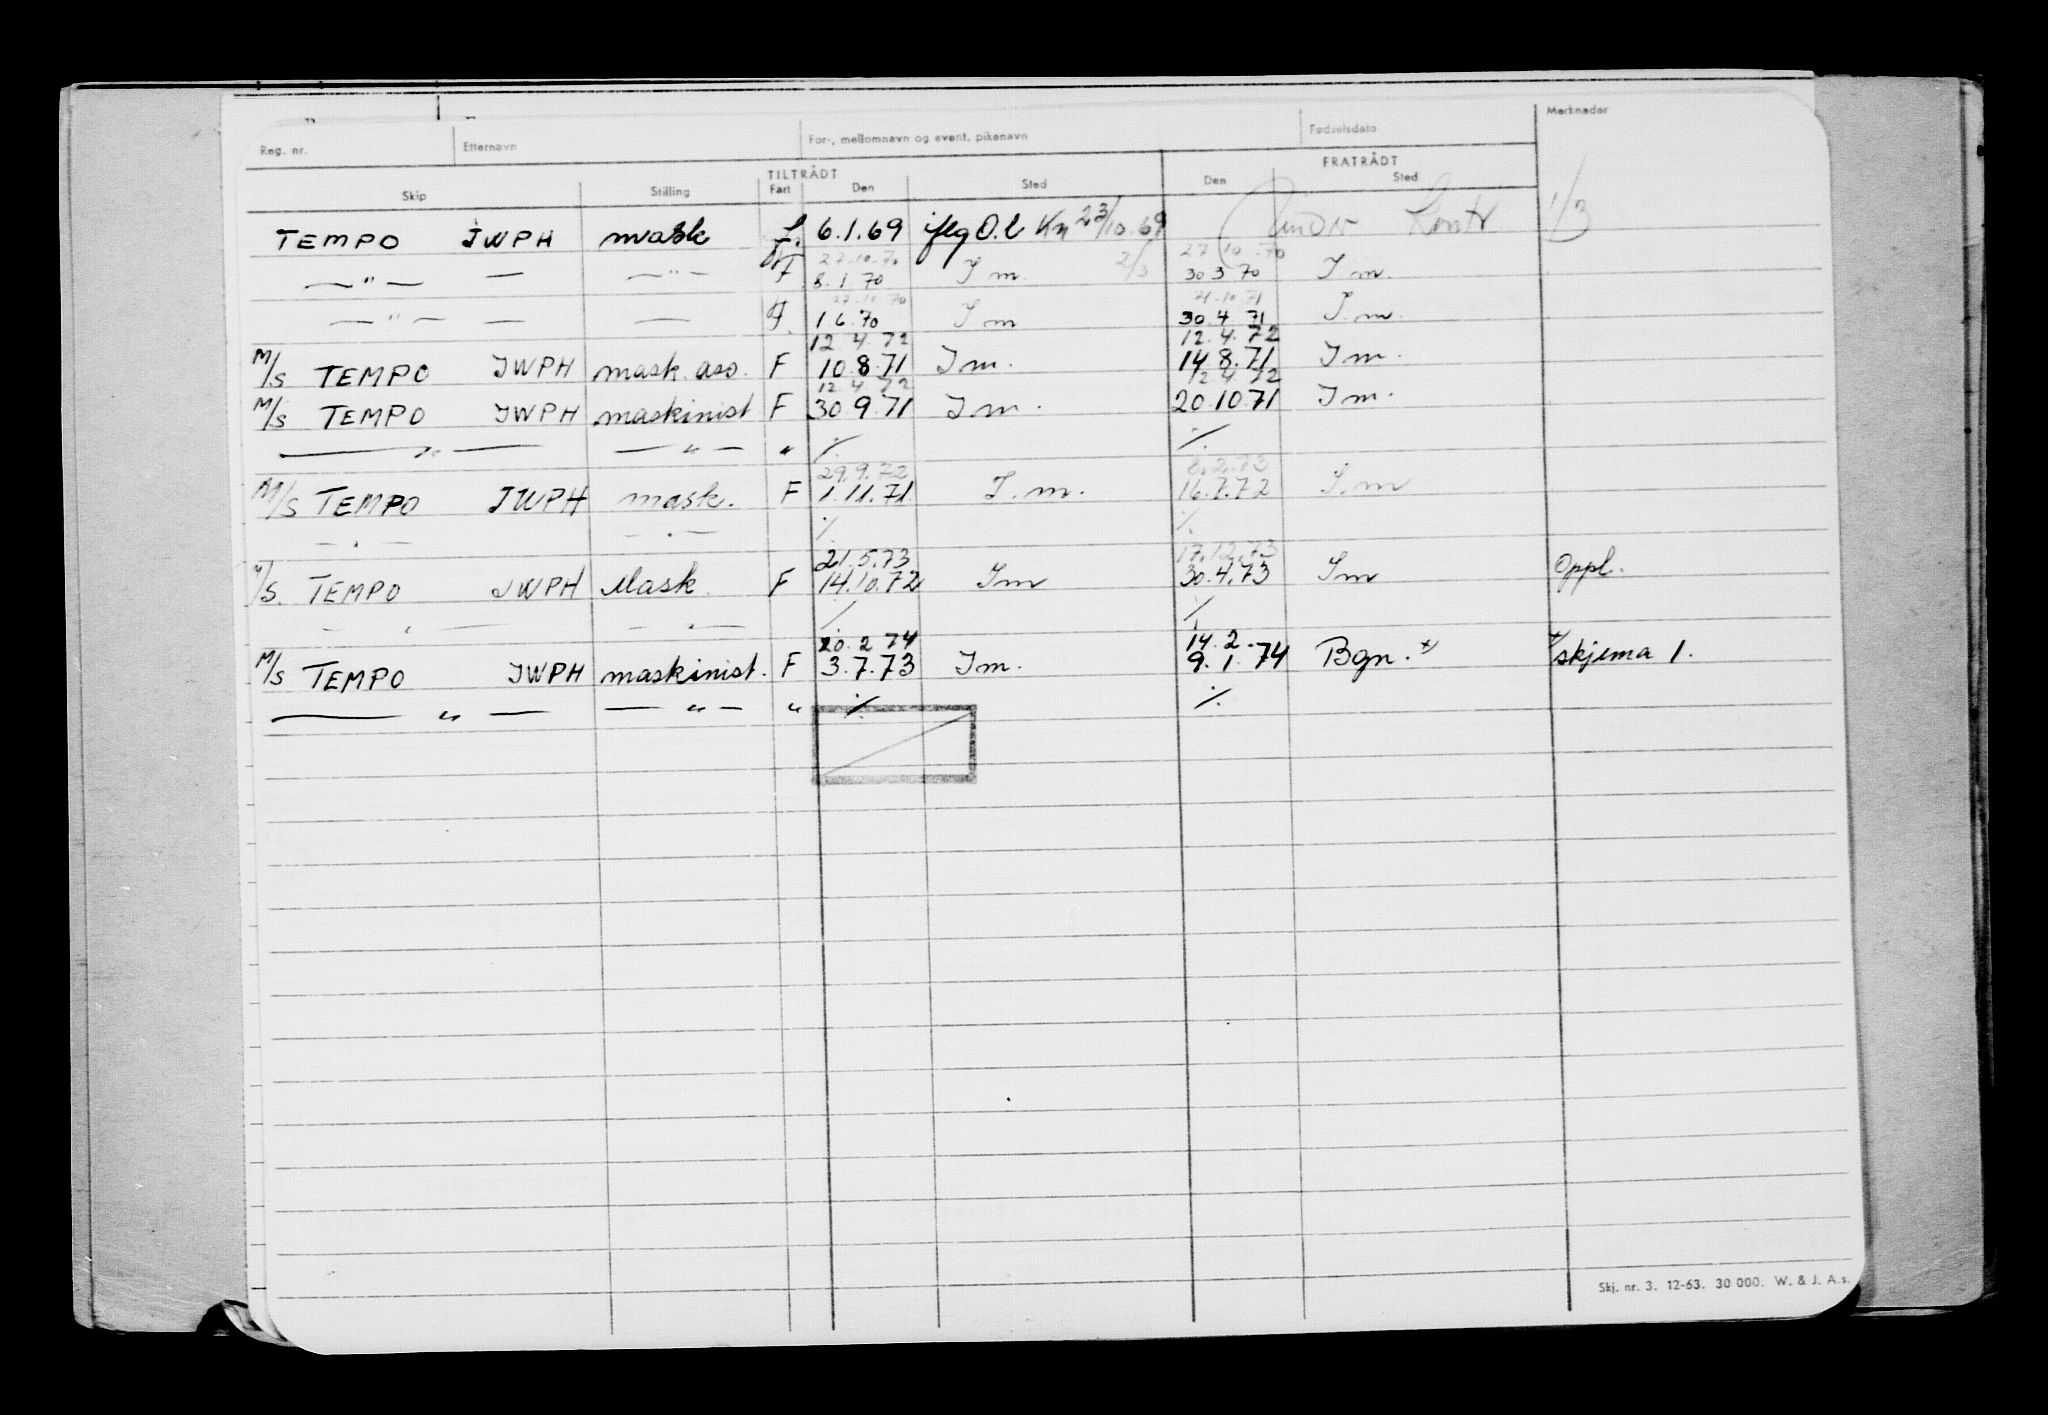 Reg. nr. Etternavn For-, mellomnavn og event. pikenavn Fødselsdato Merknader
TILTRÅDT FRATRÅDT
Skip Stilling Fart Den Sted Den Sted
TEMPO JWPH mask f. 6.1.69 iflg O.l Kn 23/10.69 (Under Kontr. 1/3
27.10.70 2/3 27.10.70
—"— — —"— F 8.1.70 I m. 30.3.70 I m.
27.10.70 21.10.71
—"— — — F. 1.6.70 I m 30.4.71 I.m.
12.4.72 12.4.72
M/S TEMPO JWPH mask.ass. F 10.8.71 I m. 14.8.71 I m.
12.4.72 12.4.72
M/S TEMPO JWPH maskinist F 30.9.71 I m. 20.10.71 I m.
—"— —"— " ./. ./.
29.9.72 8.2.73
M/S TEMPO JWPH mask. F 1.11.71 I.m. 16.7.72 I.m
—"— —"— ./. ./.
21.5.73 17.12.73
M/S. TEMPO JWPH Mask. F 14.10.72 Im 30.4.73 Im Oppl.
—"— —"— ./. ./.
20.2.74 14.2.
M/S TEMPO JWPH maskinist. F 3.7.73 Im. 9.1.74 Bgn. x) x) skjema 1.
—"— —"— " ./. ./.
Skj. nr. 3. 12-63. 30 000. W. & J. A.s.